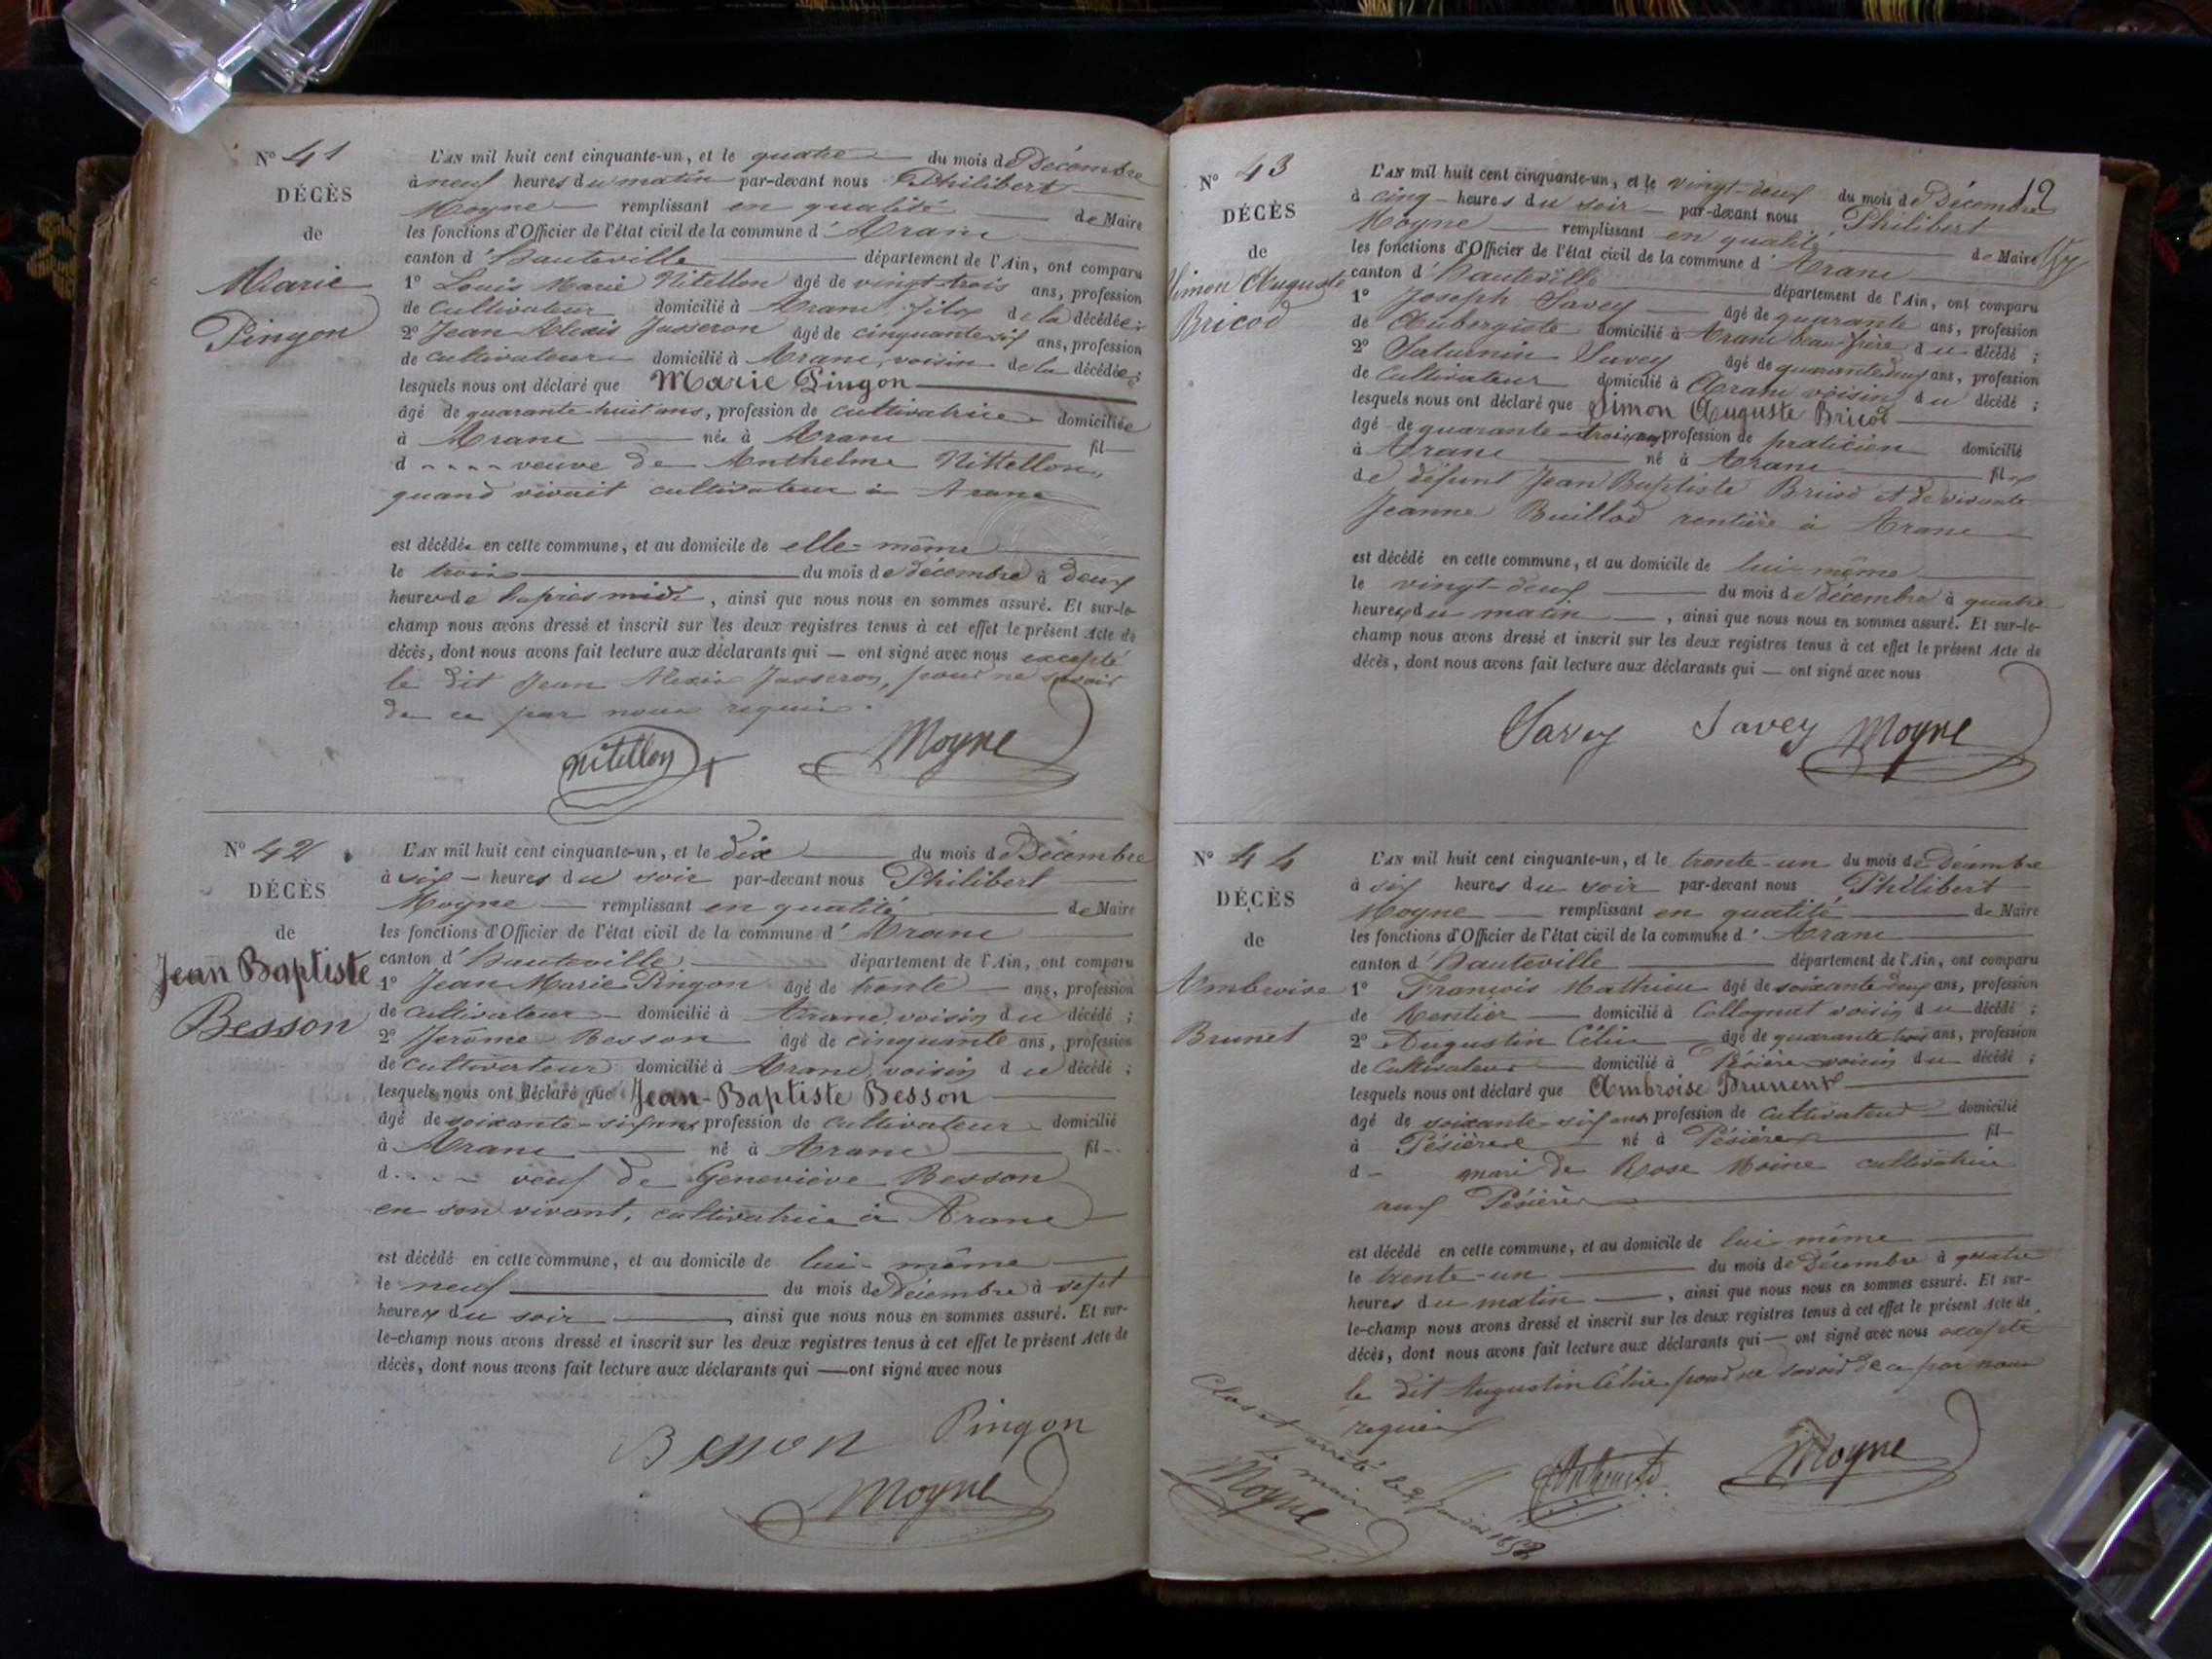 N° 41
DÉCÈS
de
Marie
Pingon
L'AN mil huit cent cinquante-un, et le quatre du mois de Décembre
à neuf heures du matin par-devant nous Philibert
Moyne remplissant en qualité de Maire
les fonctions d'Officier de l'état civil de la commune d' Arane
canton d' hauteville département de l'Ain, ont comparu
1° Louis Marie Nitellon âgé de vingt-trois ans, profession
de Cultivateur domicilié à Arane, fils de la décédée;
2° Jean Alexis Jasseron âgé de cinquante six ans, profession
de cultivateur domicilié à Arane, voisin de la décédée;
lesquels nous ont déclaré que Marie Pingon
âgé de quarante-huit ans, profession de cultivatrice domiciliée
à Arane née à Arane fil
d veuve de Anthelme Nittellon,
quand vivait cultivateur à Arane
est décédée en cette commune, et au domicile de elle-même
le trois du mois de décembre à deux
heures de l'après midi, ainsi que nous nous en sommes assuré. Et sur-le-
champ nous avons dressé et inscrit sur les deux registres tenus à cet effet le présent Acte de
décès, dont nous avons fait lecture aux déclarants qui — ont signé avec nous excepté
le dit Jean Alexis Jasseron, pour ne savoir
de ce par nous requis.
Nitellon Moyne
N° 42
DÉCÈS
de
Jean Baptiste
Besson
L'AN mil huit cent cinquante-un, et le dix du mois de Décembre
à six - heures du soir par-devant nous Philibert
Moyne remplissant en qualité de Maire
les fonctions d'Officier de l'état civil de la commune d' Arane
canton d' hauteville département de l'Ain, ont comparu
1° Jean Marie Pingon âgé de trente ans, profession
de cultivateur domicilié à Arane, voisin du décédé;
2° Jerôme Besson âgé de cinquante ans, profession
de cultivateur domicilié à Arane, voisin du décédé;
lesquels nous ont déclaré que Jean-Baptiste Besson
âgé de soixante-six ans, profession de cultivateur domicilié
à Arane né à Arane fil
d veuf de Geneviève Besson
en son vivant, cultivatrice à Arane
est décédé en cette commune, et au domicile de lui-même
le neuf du mois de Décembre à sept
heures du soir, ainsi que nous nous en sommes assuré. Et sur-
le-champ nous avons dressé et inscrit sur les deux registres tenus à cet effet le présent Acte de
décès, dont nous avons fait lecture aux déclarants qui — ont signé avec nous
Besson Pingon
Moyne
12
N° 43
DÉCÈS
de
Simon Auguste
Bricod
L'AN mil huit cent cinquante-un, et le vingt-deux du mois de Décembre
à cinq - heures du soir par-devant nous Philibert
Moyne remplissant en qualité de Maire
les fonctions d'Officier de l'état civil de la commune d' Arane
canton d' hauteville département de l'Ain, ont comparu
1° Joseph Savey âgé de quarante ans, profession
de Aubergiste domicilié à Arane beau-frère du décédé;
2° Saturnin Savey âgé de quarante deux ans, profession
de Cultivateur domicilié à Arane voisin du décédé;
lesquels nous ont déclaré que Simon Auguste Bricod
âgé de quarante-trois ans, profession de praticien domicilié
à Arane né à Arane fils
de défunt Jean Baptiste Bricod et de vivante
Jeanne Buillod rentière à Arane
est décédé en cette commune, et au domicile de lui-même
le vingt-deux du mois de décembre à quatre
heures du matin, ainsi que nous nous en sommes assuré. Et sur-le-
champ nous avons dressé et inscrit sur les deux registres tenus à cet effet le présent Acte de
décès, dont nous avons fait lecture aux déclarants qui — ont signé avec nous
Savey Savey Moyne
N° 44
DÉCÈS
de
Ambroise
Brunet
L'AN mil huit cent cinquante-un, et le trente-un du mois de Décembre
à six heures du soir par-devant nous Philibert
Moyne remplissant en qualité de Maire
les fonctions d'Officier de l'état civil de la commune d' Arane
canton d' hauteville département de l'Ain, ont comparu
1° François Mathieu âgé de soixante deux ans, profession
de Rentier domicilié à Collognat voisin du décédé;
2° Augustin âgé de quarante trois ans, profession
de Cultivateur domicilié à voisin du décédé;
lesquels nous ont déclaré que Ambroise Brunent
âgé de soixante-six ans, profession de cultivateur domicilié
à Pésières né à Pésières fil
d - mari de Rose Moine cultivatrice
aux Pésières
est décédé en cette commune, et au domicile de lui-même
le trente-un du mois de Décembre à quatre
heures du matin, ainsi que nous nous en sommes assuré. Et sur-
le-champ nous avons dressé et inscrit sur les deux registres tenus à cet effet le présent Acte de
décès, dont nous avons fait lecture aux déclarants qui — ont signé avec nous excepté
le dit Augustin pour ne savoir de ce par nous
requis
Moyne
Clos et arrêté le janvier 1852
Le maire
Moyne